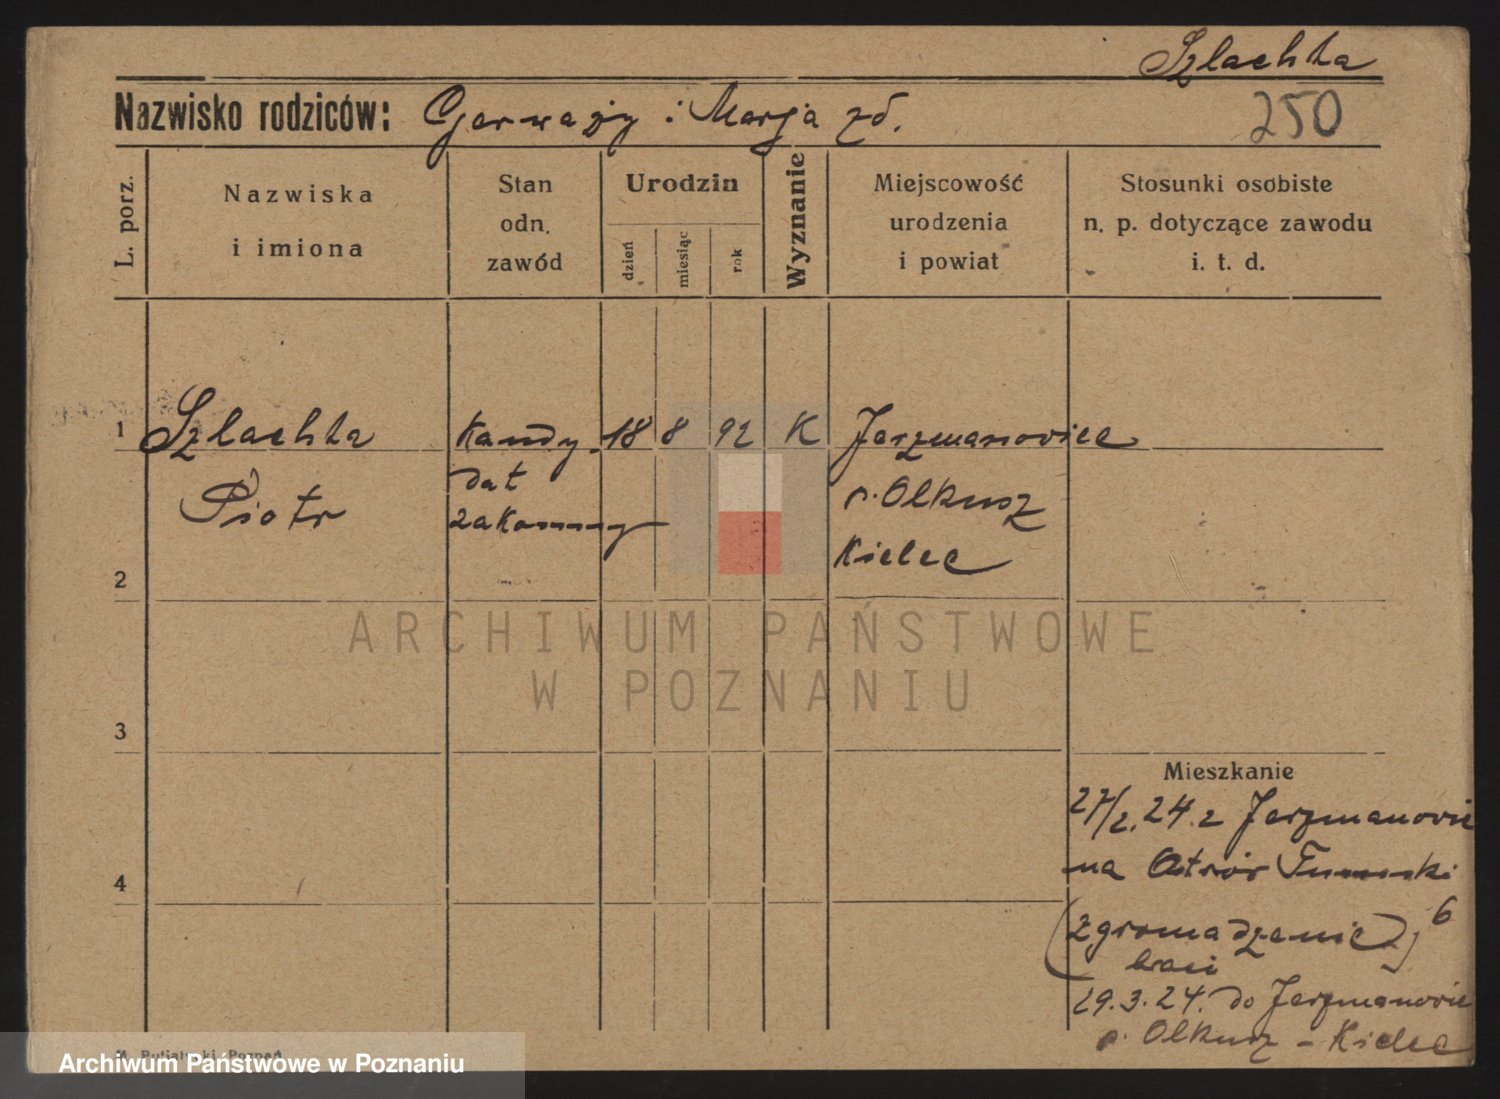 Szlachta
Nazwisko rodziców: Gerwazy i Marja zd.
250
L. porz.
Nazwiska
i imiona
Stan
odn.
zawód
Urodzin
dzień
miesiąc
rok
Wyznanie
Miejscowość
urodzenia
i powiat
Stosunki osobiste
n. p. dotyczące zawodu
i. t. d.
1 Szlachta Kandy- 18 8 92 K Jerzmanowice
Piotr dat p. Olkusz
zakonny Kielce
2
3
4
ARCHIWUM PAŃSTWOWE
W POZNANIU
Mieszkanie
27/2.24. z Jerzmanowic
na Ostrów Tumski 6
(zgromadzenie)
braci
29.3.24. do Jerzmanowic
p. Olkusz - Kielce
Poznań
Archiwum Państwowe w Poznaniu